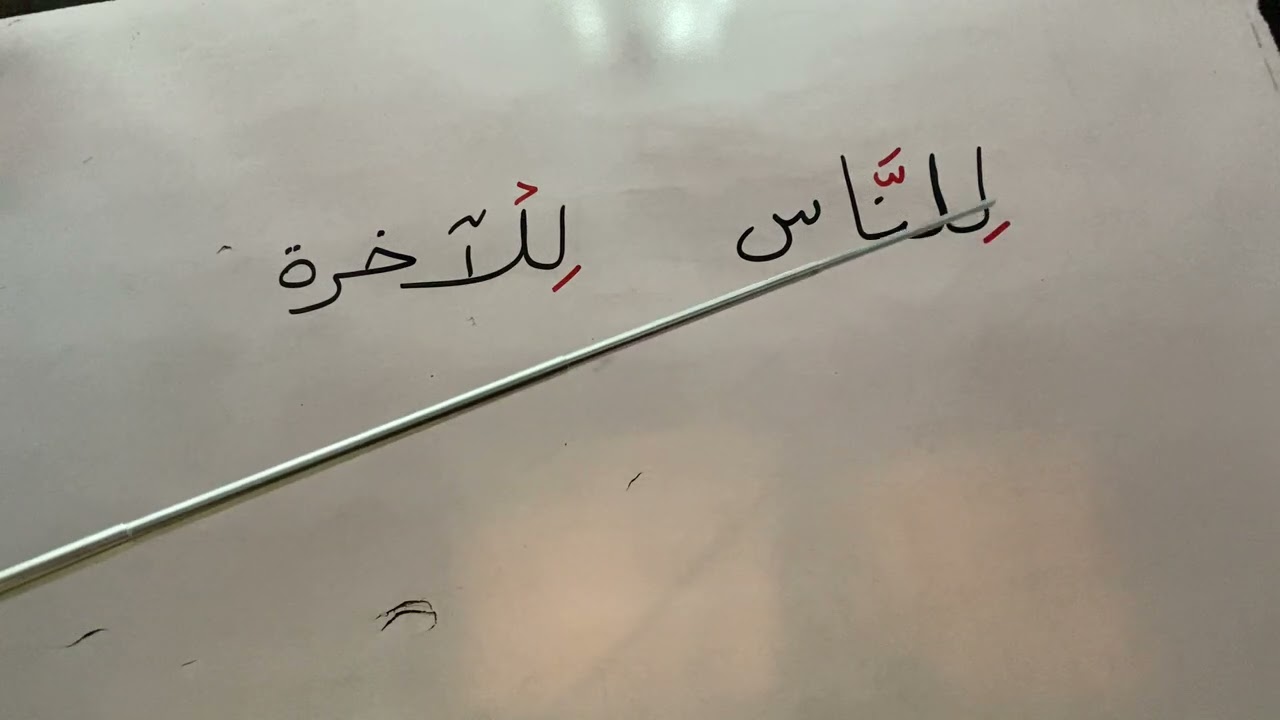 لِلنَّاس لِلْآخرة